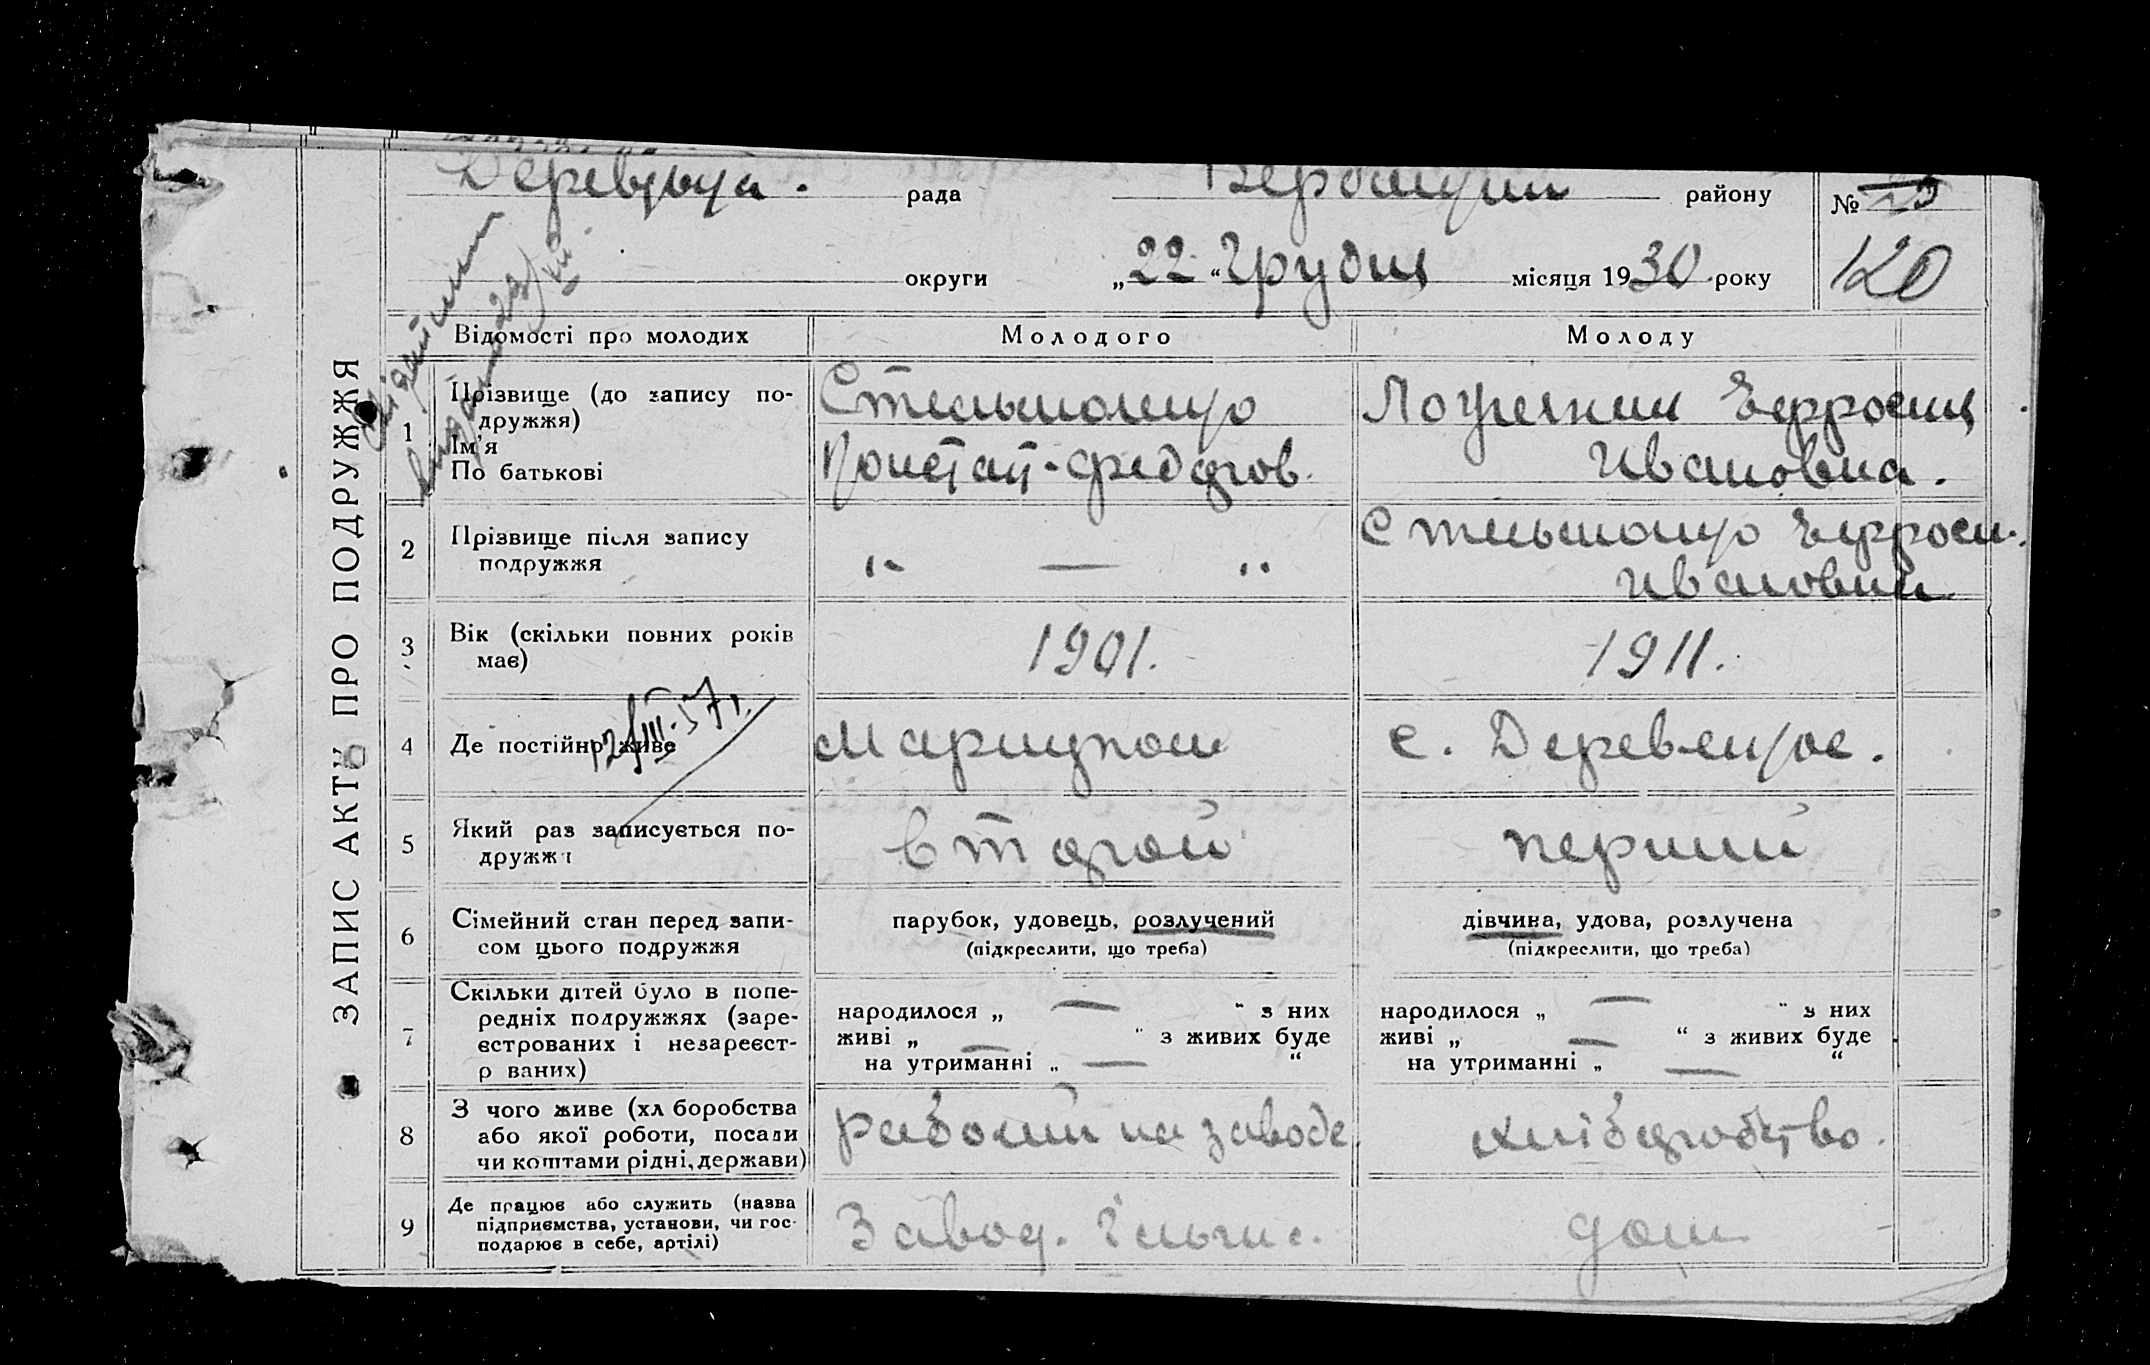 ЗАПИС АКТУ ПРО ПОДРУЖЖЯ
рада
району
№
округи
„22“ Грудня місяця 1930 року
120
Відомості про молодих
Молодого
Молоду
1
Прізвище (до запису по-
дружжя)
Ім'я
По батькові
Стельмошко
Констант-Федоров.
Ефросин
Ивановна.
2
Прізвище після запису
подружжя
" — "
Стельмошко Ефросин.
Ивановна
3
Вік (скільки повних років
має)
1901.
1911.
4
Де постійно живе
12/III-57г.
Мариуполь
с. Деревецкое.
5
Який раз записується по-
дружжя
второй
перший
6
Сімейний стан перед запи-
сом цього подружжя
парубок, удовець, розлучений
(підкреслити, що треба)
дівчина, удова, розлучена
(підкреслити, що треба)
7
Скільки дітей було в попе-
редніх подружжях (заре-
єстрованих і незареєст-
р ваних)
народилося „ — “ з них
живі „ — “ з живих буде
на утриманні „ — “
народилося „ — “ з них
живі „ — “ з живих буде
на утриманні „ — “
8
З чого живе (хл боробства
або якої роботи, посади
чи коштами рідні, держави)
рабочий на заводе
хліборобство.
9
Де працює або служить (назва
підприємства, установи, чи гос-
подарює в себе, артілі)
Завод. Ільича.
дом